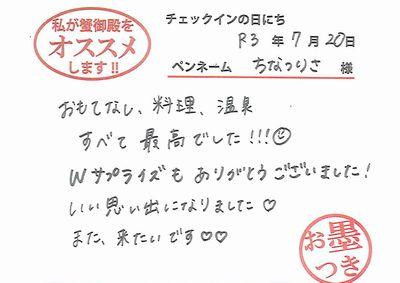 私が蟹御殿を
オススメ
します!!
チェックインの日にち
R3 年 7 月 20 日
ペンネーム ちなつりさ 様
おもてなし、料理、温泉
すべて 最高でした!!!
Wサプライズも ありがとうございました!
いい思い出になりました♡
また、来たいです♡♡
お墨
つき